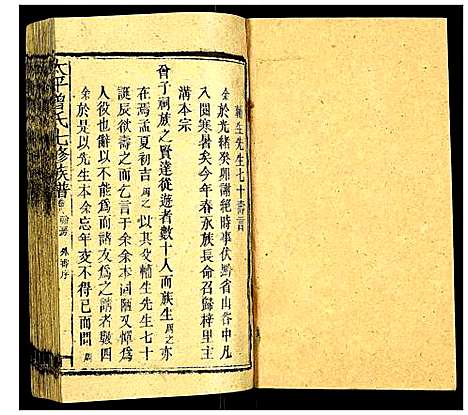 輔生先生七十壽言
余於光緒癸卯謝絶時事伏黔省山谷中凡
入閱寒暑矣今年春永族長命召歸梓里主
溝本宗
曾子祠族之賢達從遊者數十人而族生周之亦
在焉孟夏初吉周之以其父輔生先生七十
誕辰欲壽之而乞言于余余本詞陋又憚為
人役也辭以不能爲而諸友爲之請者數四
余於是以先生本余忘年交不得已而問
太平曾氏七修族譜 外壽序